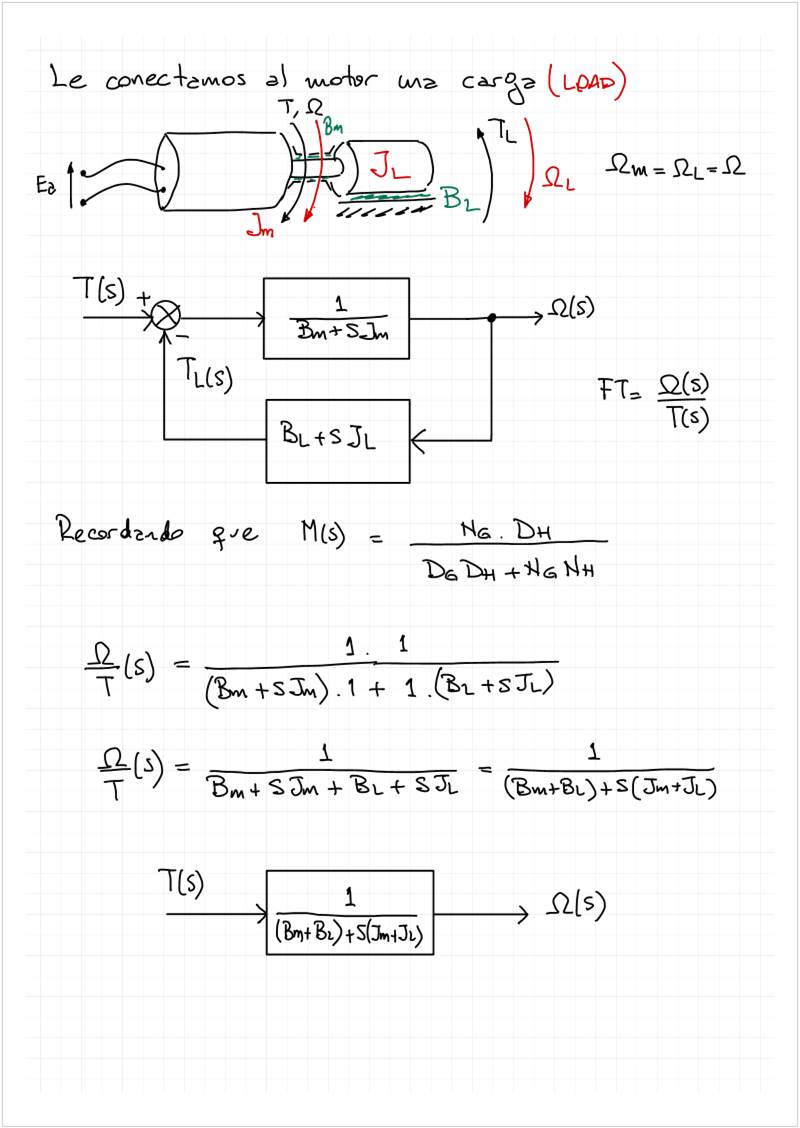 Le conectamos al motor una carga (LOAD)
T, Ω
Bm
Ea
Jm
JL
BL
TL
ΩL
Ωm = ΩL = Ω
T(s) + -
1
Bm + SJm
Ω(s)
TL(s)
BL + SJL
FT = Ω(s)
T(s)
Recordando que M(s) = NG . DH
DG DH + NG NH
Ω/T (s) = 1 . 1
(Bm + SJm) . 1 + 1 . (BL + SJL)
Ω/T (s) = 1 = 1
Bm + SJm + BL + SJL (Bm+BL) + S(Jm+JL)
T(s)
1
(Bm+BL)+S(Jm+JL)
Ω(s)